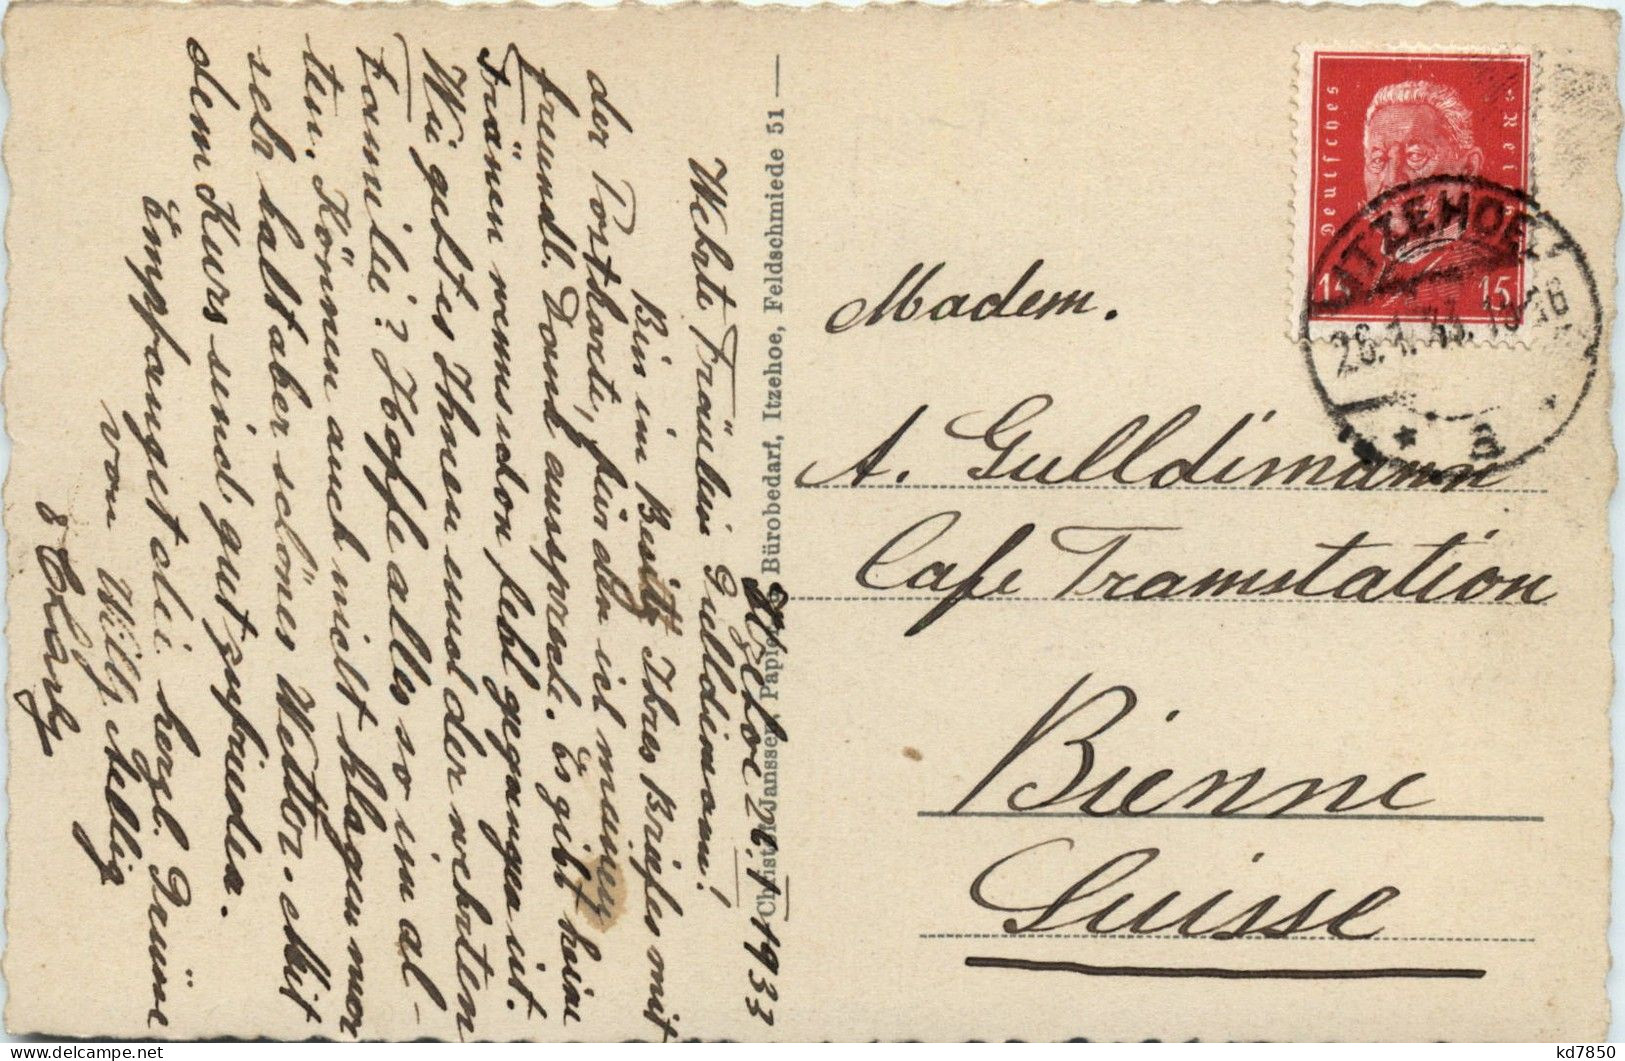 Itzehoe 26.1.1933
Werte Fräulein Gulldimann!
Bin im Besitz Ihres Briefes mit
der Postkarte, für den ich meinen
freundl. Dank ausspreche. Es gibt keine
Tränen wenns schon fehl gegangen ist.
Wie geht es Ihnen und der wehrten
Familie? Hoffe alles so im al-
ten. Können auch nicht klagen nur
sehr kalt aber schönes Wetter. Mit
dem Kurs sind gut zufrieden.
Empfanget die herzl. Grüsse
von Willy Aebby
Christian Janssen, Papier- Bürobedarf, Itzehoe, Feldschmiede 51 —
Deutsches Reich
15 15
ITZEHOE
26.1.33. 15-16
* a *
Madem.
A. Gulldimann
Cafe Tramstation
Bienne
Suisse
kd7850